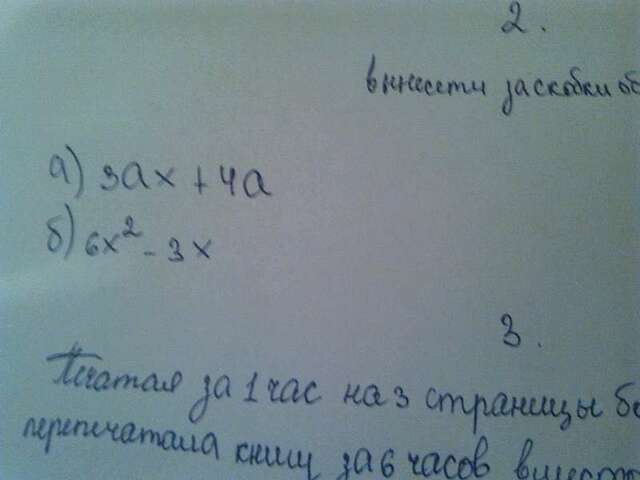 2.
вынести за скобки об
а) 3ах + 4а
б) 6х² - 3х
3.
Печатая за 1 час на 3 страницы бо
перепечатала книгу за 6 часов вместо